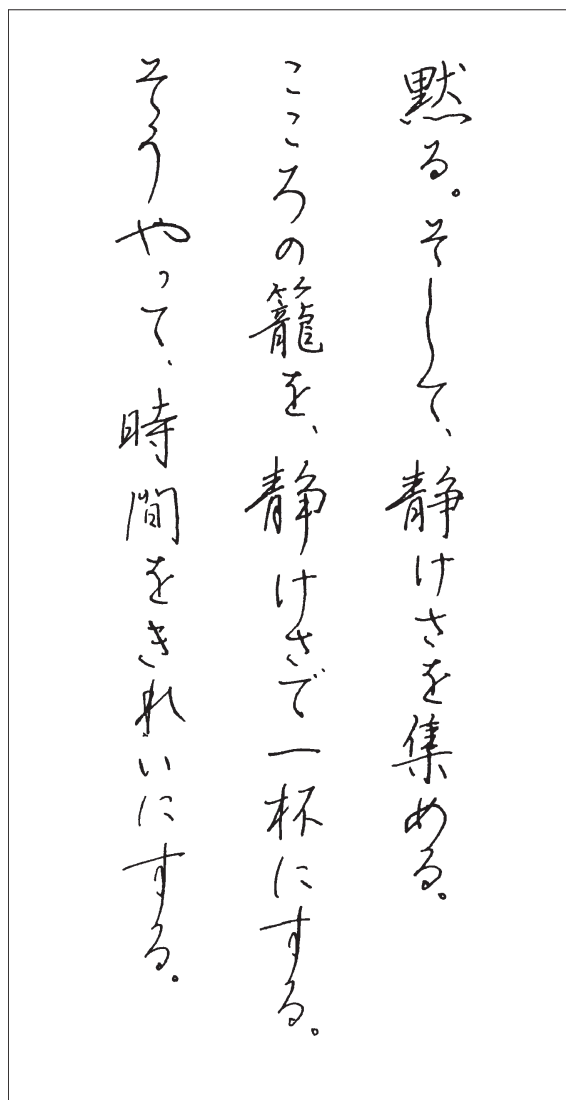 黙る。そして、静けさを集める。
こころの籠を、静けさで一杯にする。
そうやって、時間をきれいにする。